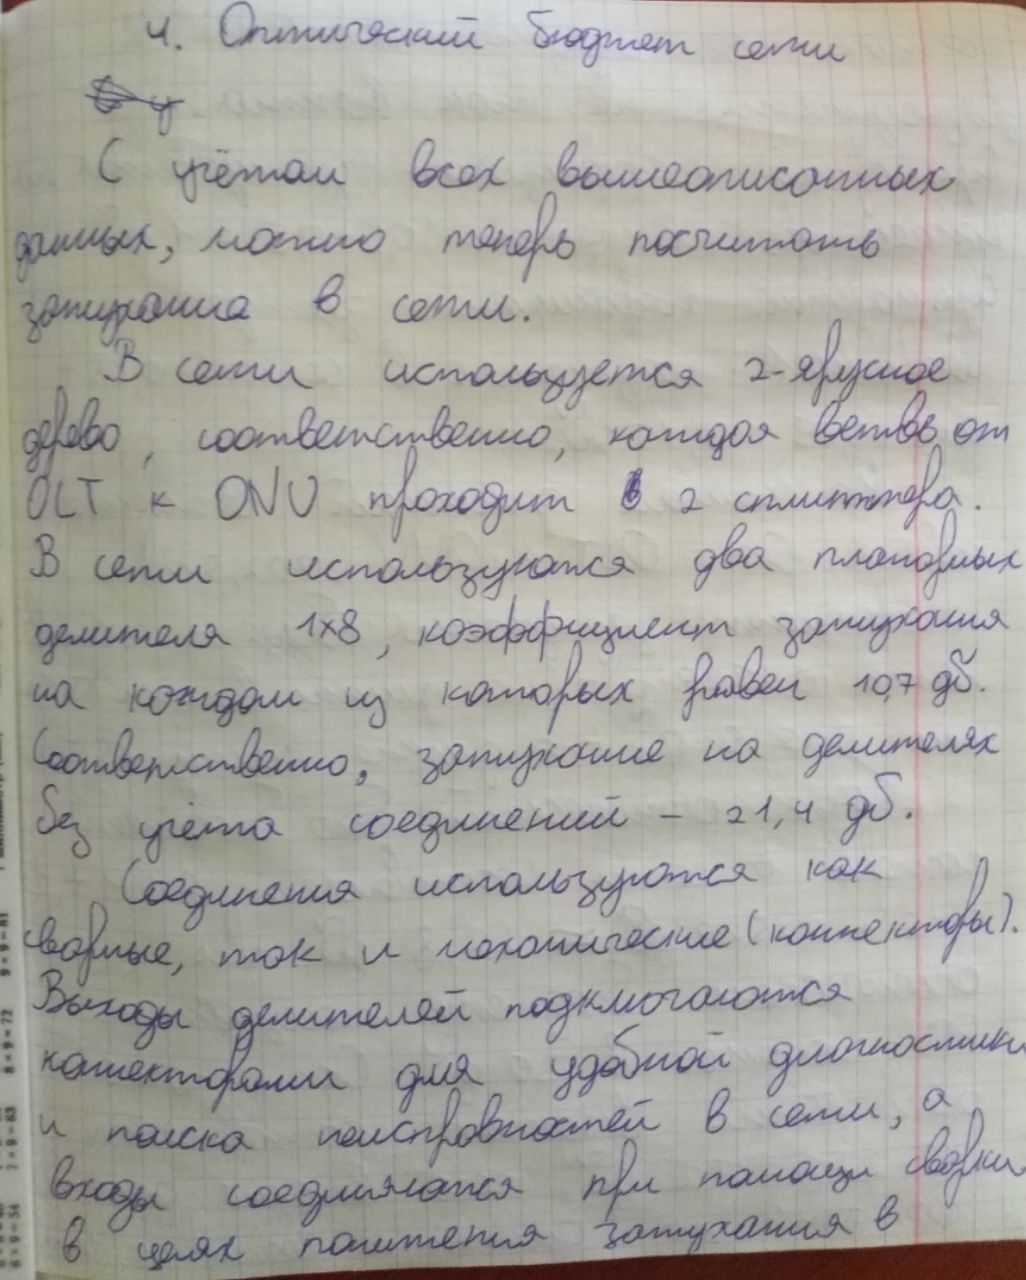 4. Оптический бюджет сети
С учётом всех вышеописанных
данных, можно теперь посчитать
затухания в сети.
В сети используется 2-ярусное
дерево, соответственно, каждая ветвь от
OLT к ONU проходит 2 сплиттера.
В сети используются два планарных
делителя 1x8, коэффициент затухания
на каждом из которых равен 10,7 дб.
Соответственно, затухание на делителях
без учёта соединений - 21,4 дб.
Соединения используются как
сварные, так и механические (коннекторы).
Выходы делителей подключаются
коннекторами для удобной диагностики
и поиска неисправностей в сети, а
входы соединяются при помощи сварки
в целях понижения затухания в
8×9=72
9×9=81
7×9=63
6×9=54